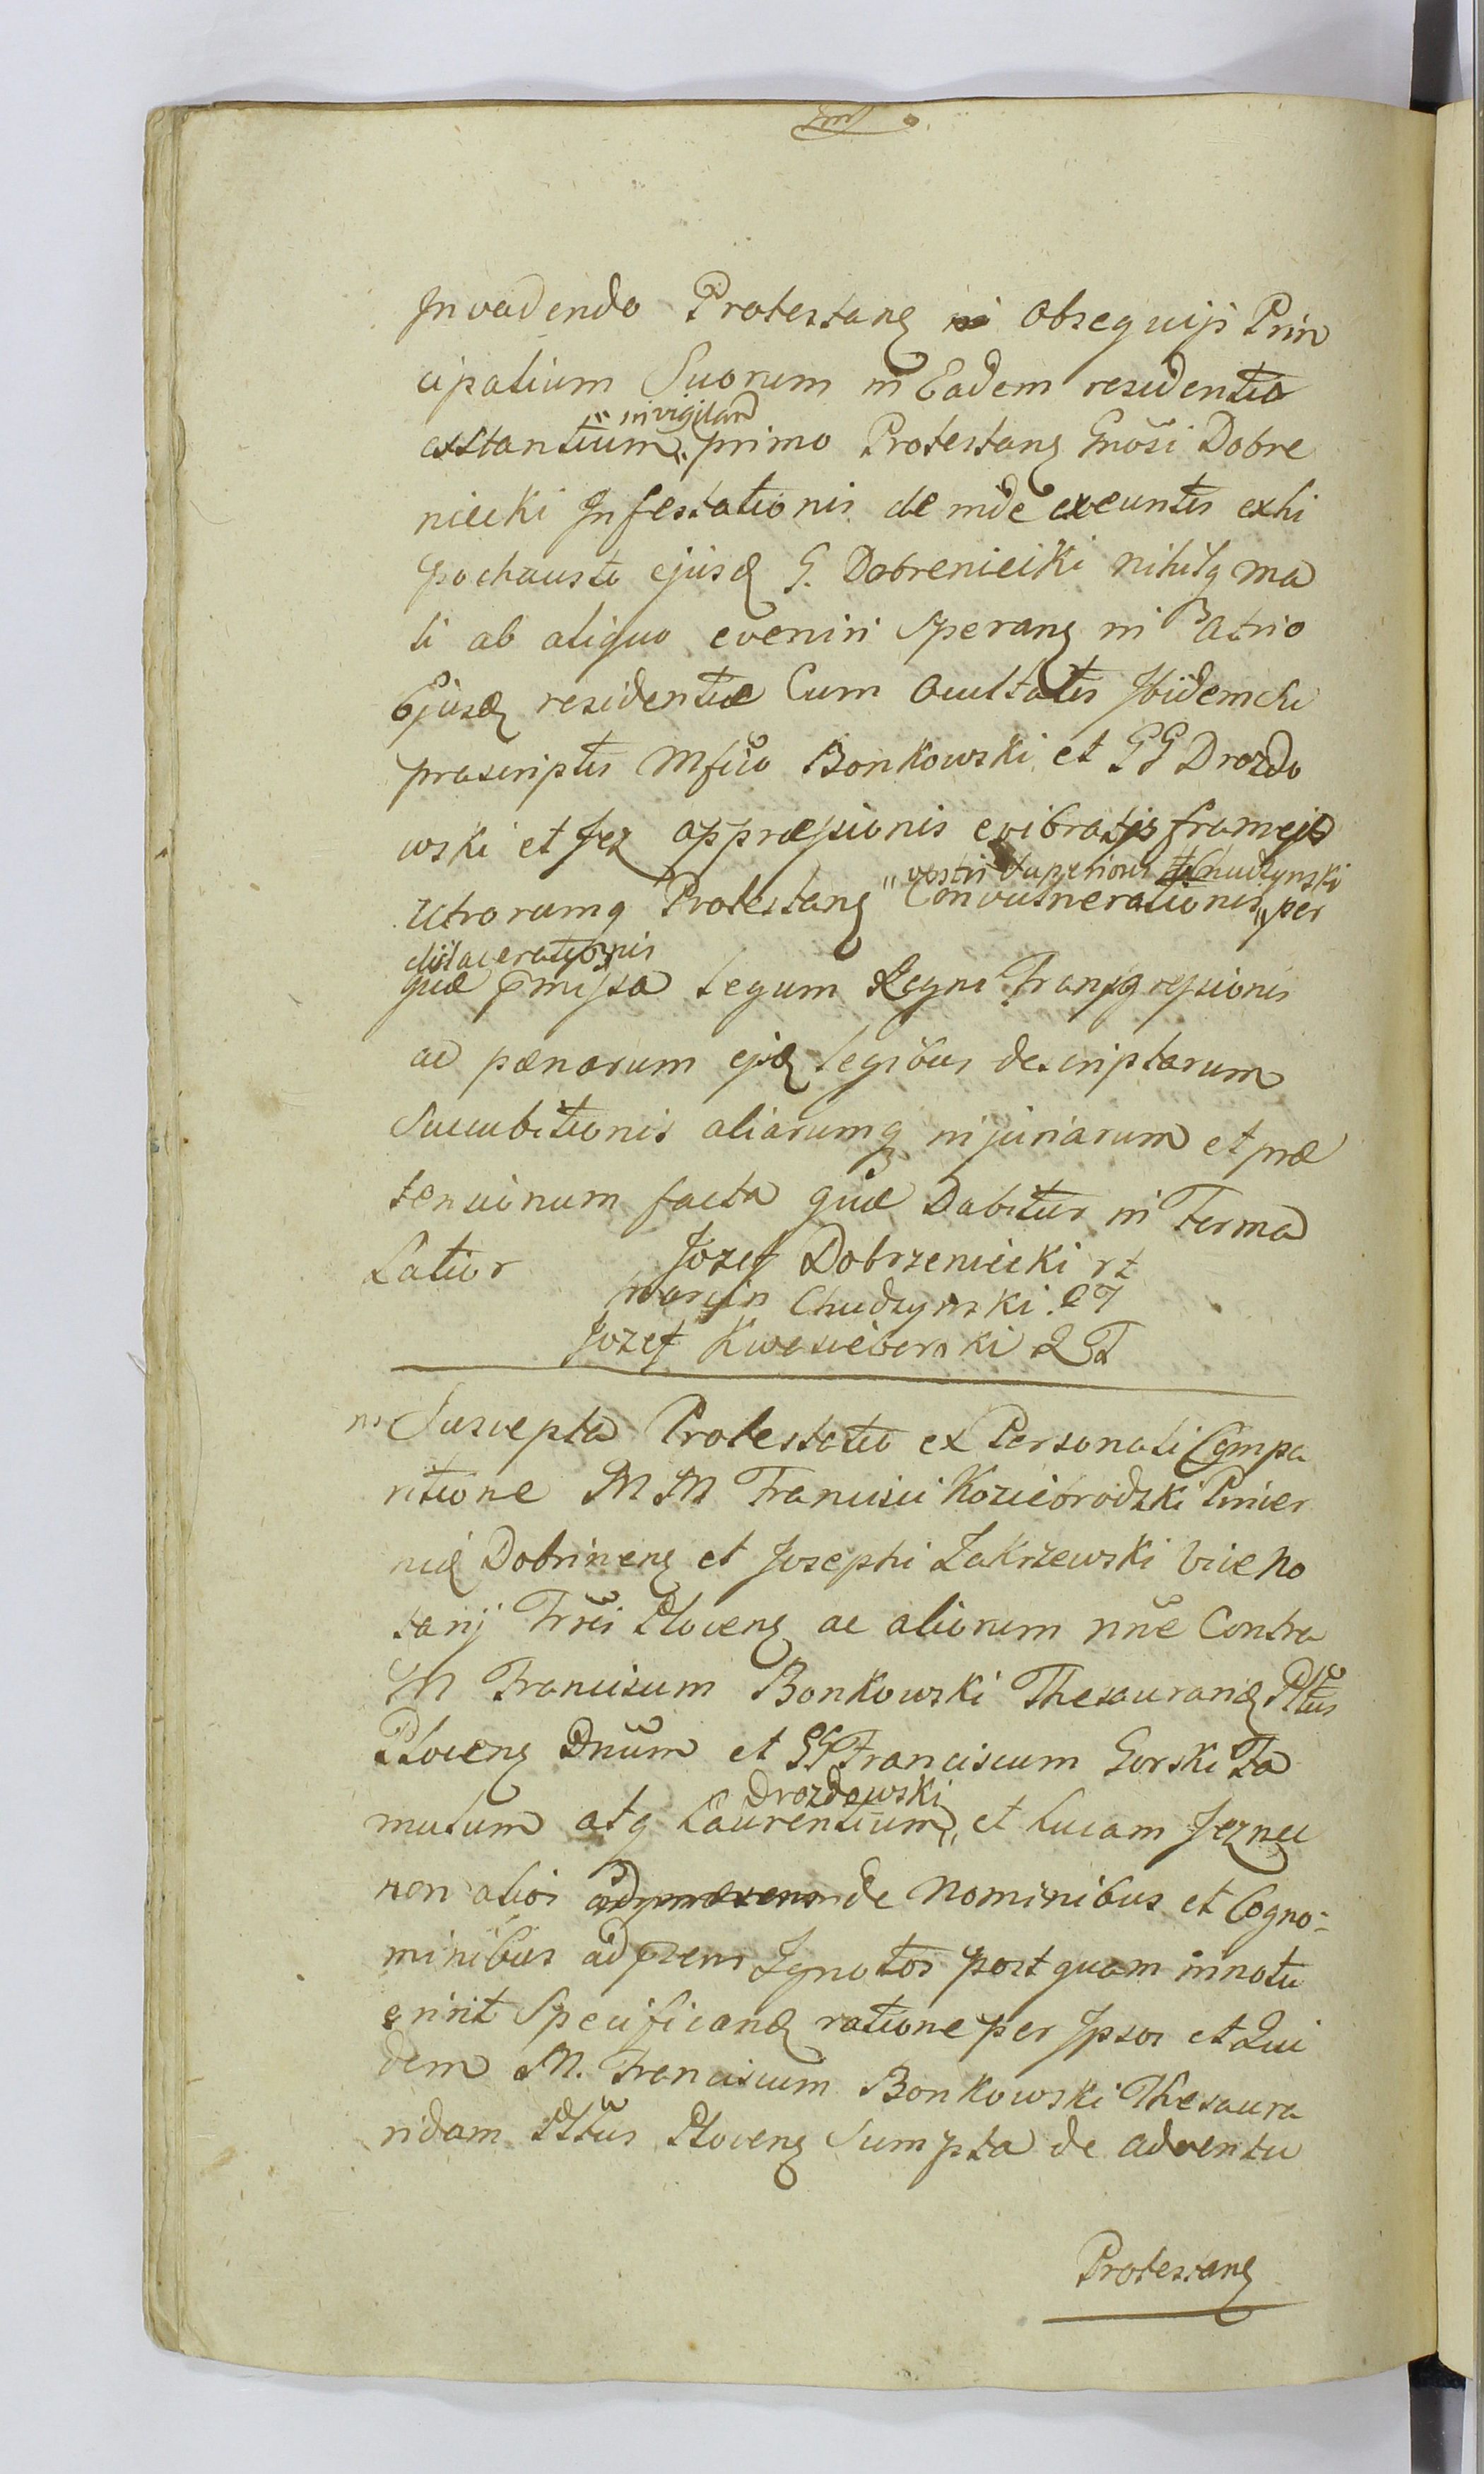 Invadendo Protestang in Obsequijs Prin
cipalium Suorum in Eadem residentia
invigiland
exstantium primo Protestang Gnosi Dobre
niecki Infestationis de inde exeuntis ex hi
pochausto ejusq G. Dobrenieiki nihilq ma
li ab aliquo eveniri Sperang in Patrio
Ejusq residentiæ Cum Ocultatis Ibidem Su
prascriptis Mfico Bonkowski et GG Drozdo
wski et Jez appræssionis evibratis frameis
vestis Superioris Chudzynski
Utrorumq Protestang Convulnerationis per
dilacerationis
quæ pmissa Legum Regni Transgressionis
ac pænarum ejsq Legibus descriptarum
Succubitionis aliarumq injuriarum et præ
tensionum facta quæ Dabitur in Forma
Latior Jozef Dobrzeniecki
Marcin Chudzynski
Jozef Kwasieborski
Suscepta Protestatio ex Personali Compa
ritione M M Francisci Koziebrodzki Pincer
nid Dobrineng et Josephi Zakrzewski Vice No
tarij Trris Ploceng ac aliorum nne Contra
M Franciscum Bonkowski Thesauranid Pltus
Ploceng Dnum et GG Franciscum Gorski Fa
Drozdowski
mulum atq Laurentium et Lucam Jez nec
non alios de Nominibus et Cogno-
minibus ad præns Ignotos post quam innotu
erint Specificand ratione per Ipsos et Qui
dem M. Franciscum Bonkowski Thesaura
ridam Pltus Ploceng Sumpta de adventu
Protestang